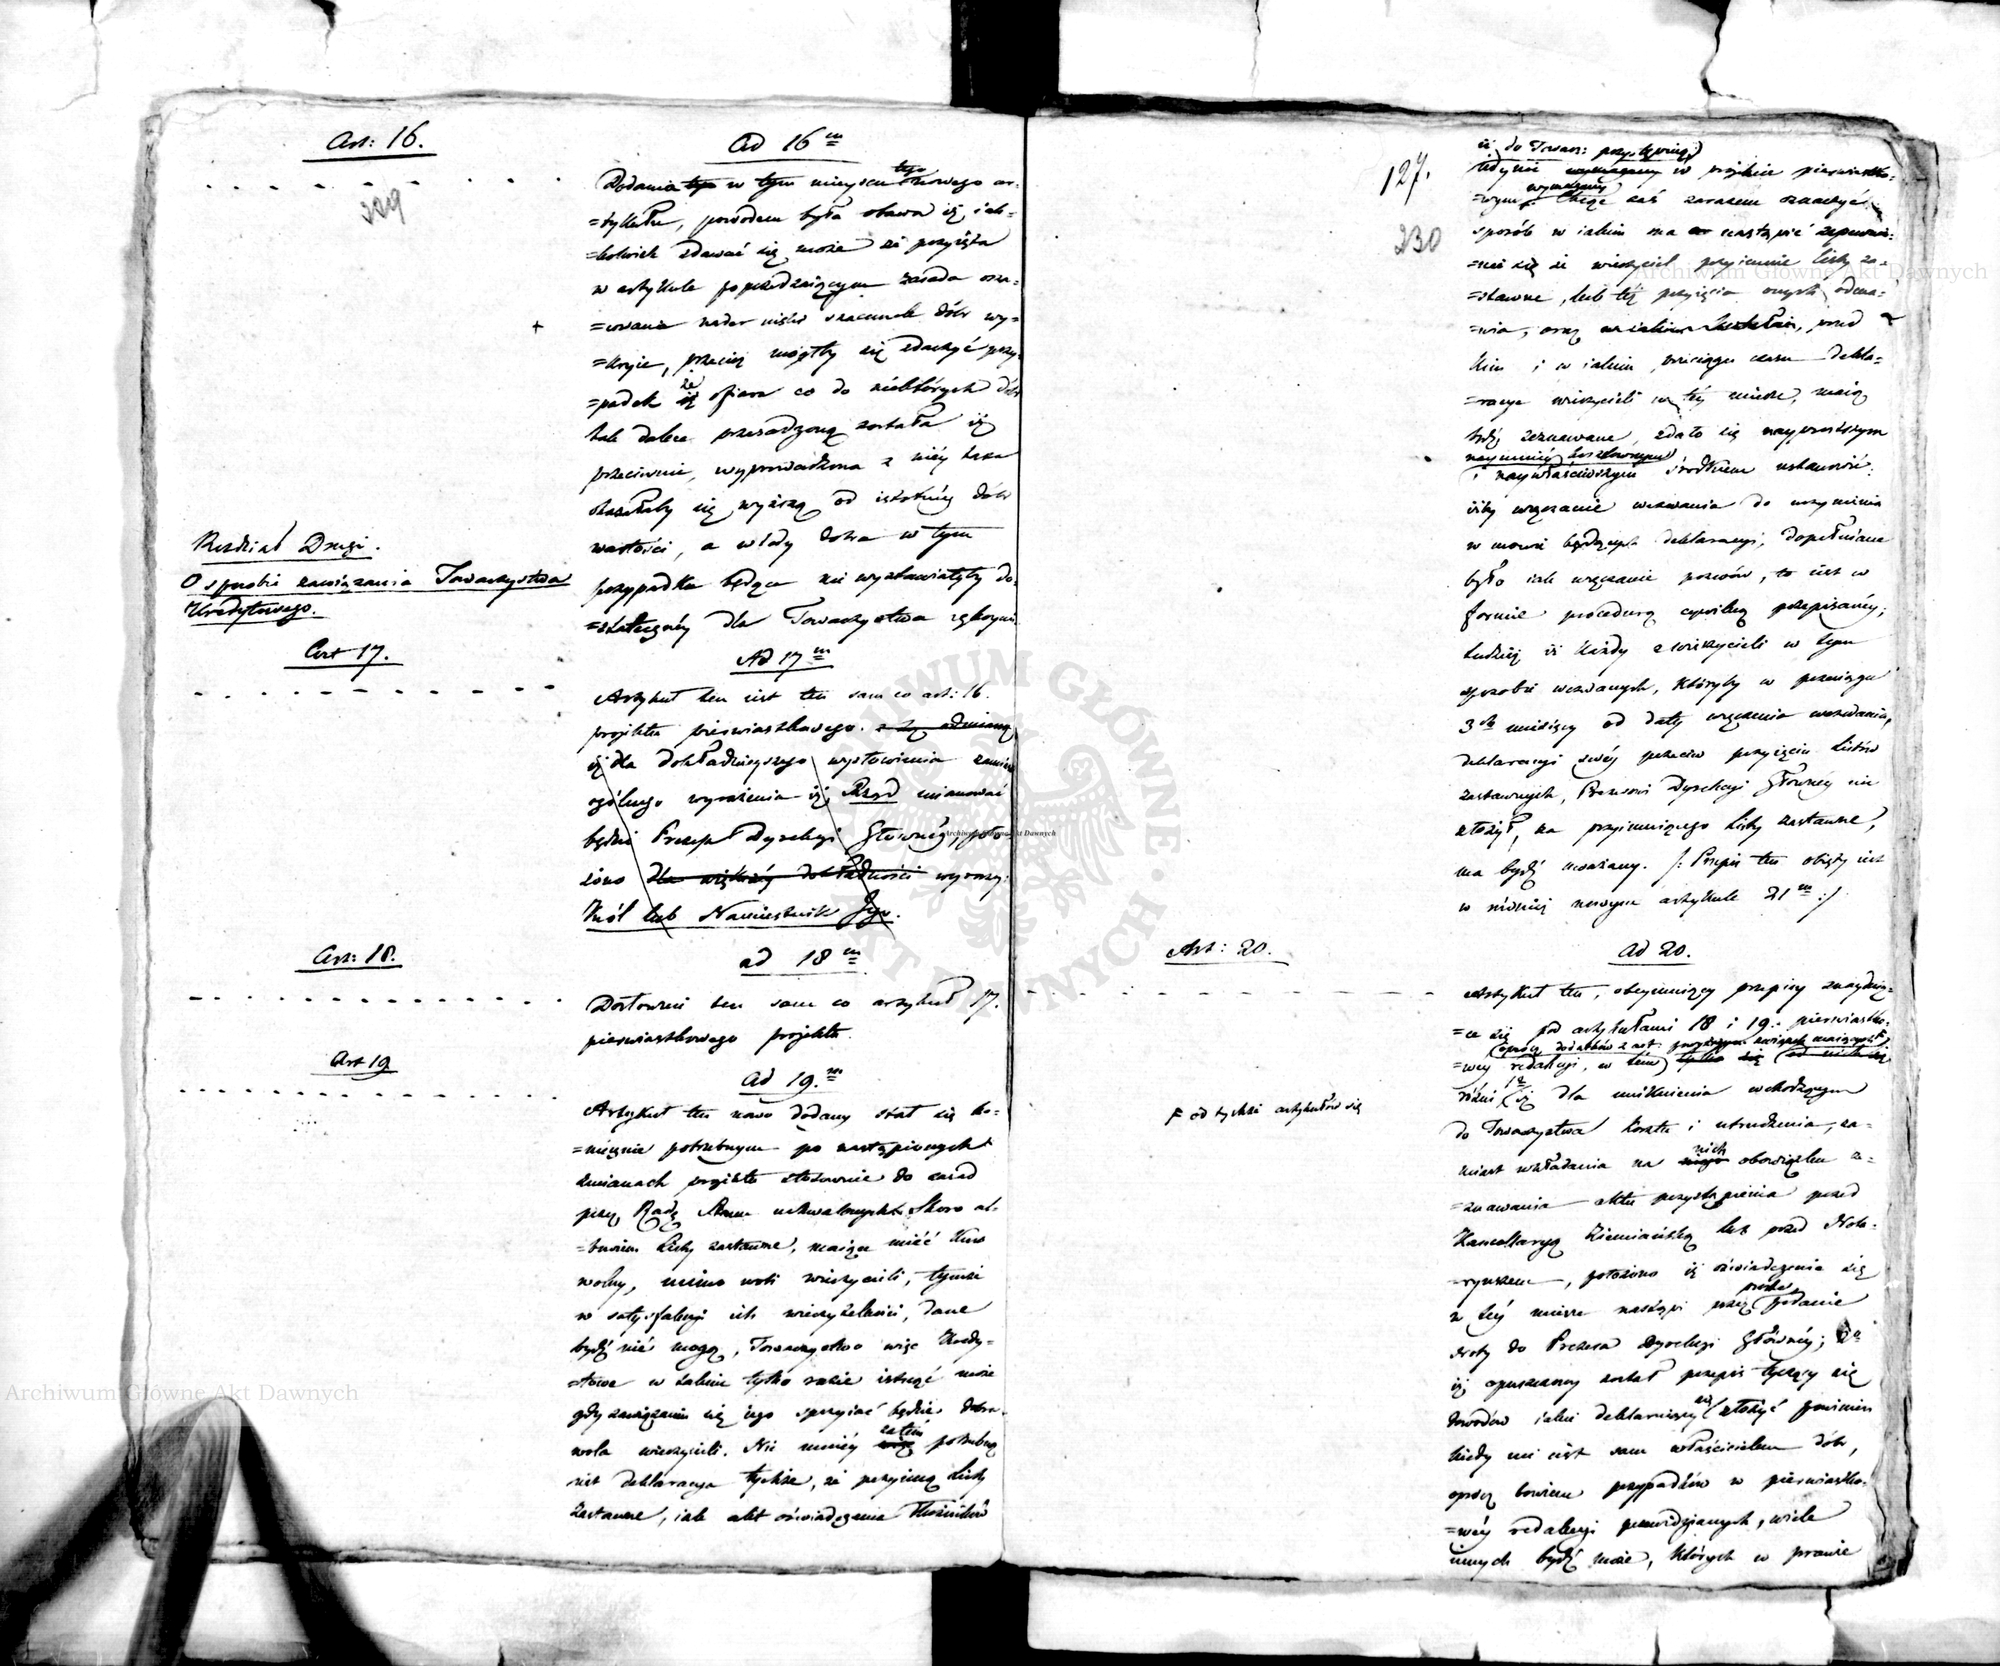 Art: 16.
329
Rozdział Drugi.
O sposobie zawiązania Towarzystwa
Kredytowego.
Art 17.
Art: 18.
Art 19
Ad 16m
Dodania tego w tym mieyscu nowego ar-
=tykułu, powodem była obawa iż iak-
=kolwiek zdawać się może że przyięta
w artykule poprzedzaiącym zasada sza-
=cowania nader niski szacunek dóbr wy-
=kryie, przecież mógłby się zdarzyć przy-
=padek że ofiara co do niektórych dóbr
tak dalece przesadzoną została iż
przeciwnie, wyprowadzona z niéy taxa
okazałaby się wyższą od istotnéy dóbr
wartości, a wtedy dobra w tym
przypadku będące nie wystawiałyby do-
=statecznéy dla Towarzystwa rękoymi.
Ad 17m
Artykuł ten iest ten sam co art: 16.
projektu pierwiastkowego. z tą odmianą
iż dla dokładnieyszego wysłowienia zamiast
ogólnego wyrażenia iż Rząd mianować
będzie Prezesa Dyrekcyi Głównéy, poło-
żono dla większéy dokładności wyrazy:
Król lub Namiestnik Jego.
ad 18m
Dosłownie ten sam co artykuł 17.
pierwiastkowego projektu.
Ad 19.m
Artykuł ten nowo dodany stał się ko-
=niecznie potrzebnym po nastąpionych
zmianach projektu stosownie do zasad
przez Radę Stanu uchwalonych. Skoro al-
=bowiem Listy zastawne, maiące mieć kurs
wolny, mimo woli wierzycieli, tymże
w satysfakcyi ich wierzytelności, dane
bydź nie mogą, Towarzystwo więc Kredy-
=towe w takim tylko razie istnieć może
gdy zawiązaniu się iego sprzyiać będzie dobra
wola wierzycieli. Nie mniéy zatém potrzebną
iest deklaracya tychże, że przyimą Listy
Zastawne, iak akt oświadczenia Dłużników
127.
230
iż do Towarz: przystępuią,
iedynie wymagany w projekcie pierwiastko-
=wym. Chcąc zaś zarazem oznaczyć
sposób w iakim ma nastąpić
=nie się że wierzyciel przyimuie Listy za-
=stawne, lub téż przyięcia onych odma-
=wia, oraz przed
kim i w iakim przeciągu czasu dekla-
=racye wierzycieli w téy mierze, maią
bydź zeznawane, zdało się nayprostszym
naymniéy kosztownym
i naywłaściwszym środkiem ustanowić:
iżby wręczanie wezwania do uczynienia
w mowie będącéy deklaracyi, dopełniane
było iak wręczanie pozwów, to iest w
formie procedurą cywilną przepisanéy;
tudzież iż każdy z wierzycieli w tym
sposobie wezwanych, któryby w przeciągu
3ch miesięcy od daty wręczenia wezwania,
deklaracyi swéy przeciw przyięciu Listów
zastawnych, Prezesowi Dyrekcyi Głównéy nie
złożył, za przyimuiącego Listy zastawne,
ma bydź uważany. /: Przepis ten obięty iest
w niniéy nowym artykule 21m :/
Art: 20.
F od tychże artykułów się
Ad 20.
Artykuł ten, obeymuiący przepisy znayduią-
=ce się pod artykułami 18 i 19. pierwiastko-
=wéy redakcyi, w tém
różni, iż dla uniknienia wchodzącym
do Towarzystwa kosztu i utrudzenia, za-
miast wkładania na nich obowiązku ze-
=znawania aktu przystąpienia przed
Kancellaryą Ziemiańską lub przed Nota-
=ryuszem, położono iż oświadczenia się
w téy mierze nastąpi przez proste podanie
do Prezesa Dyrekcyi Głównéy;
iż opuszczony został przepis tyczący się
dowodów iakie deklaruiący złożyć powinien
kiedy nie iest sam właścicielem dóbr,
oprócz bowiem przypadków w pierwiastko-
=wéy redakcyi przewidzianych, wiele
innych bydź może, których w prawie